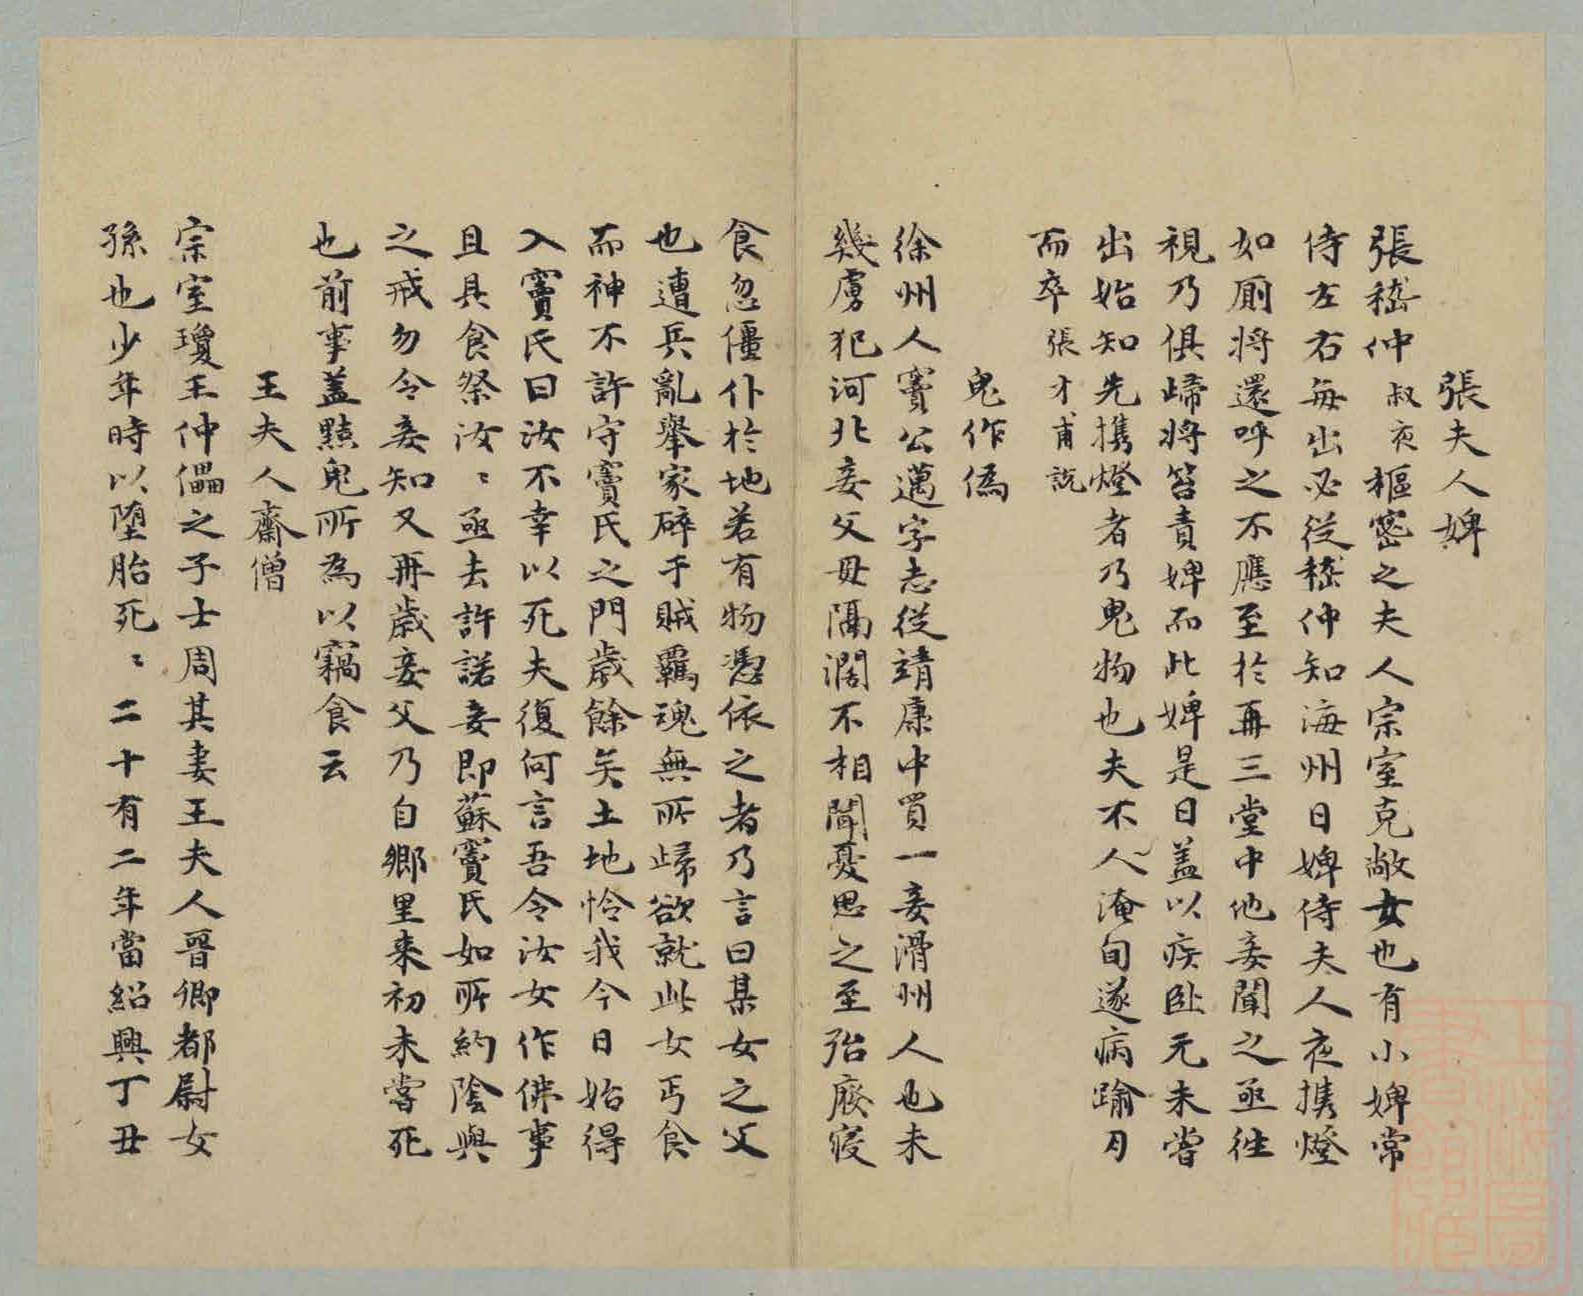 張夫人婢
張嵇仲叔夜樞密之夫人宗室克敞女也有小婢常
侍左右每出必從嵇仲知海州日婢侍夫人夜携燈
如厠将還呼之不應至於再三堂中他妾聞之亟往
視乃俱歸将笞責婢而此婢是日盖以疾卧元未嘗
出始知先携燈者乃鬼物也夫人淹旬遂病踰月
而卒張才甫説
鬼作僞
徐州人竇公邁字志從靖康中買一妾滑州人也未
幾虜犯河北妾父母隔濶不相聞憂思之至殆廢寝
食忽僵仆於地若有物憑依之者乃言曰某女之父
也遭兵亂舉家碎于賊羈魂無所歸欲就此女丐食
而神不許守竇氏之門歲餘矣土地怜我今日始得
入竇氏曰汝不幸以死夫復何言吾令汝女作佛事
且具食祭汝〻亟去許諾妾即蘇竇氏如所約陰與
之戒勿令妾知又再歲妾父乃自鄉里来初未嘗死
也前事盖黠鬼所為以竊食云
王夫人齋僧
宗室瓊王仲儡之子士周其妻王夫人晋卿都尉女
孫也少年時以堕胎死〻二十有二年當紹興丁丑